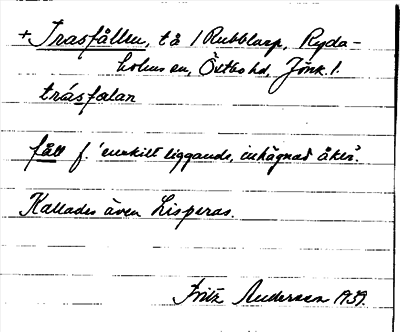 + Trasfållen, tå 1 Rubblarp, Ryda-
holms sn, Östbo hd, Jönk. l.
trásfalan
fåll f. 'enskilt liggande, inhägnad åker'.
Kallades även Lisperas.
Fritz Andersson 1939.